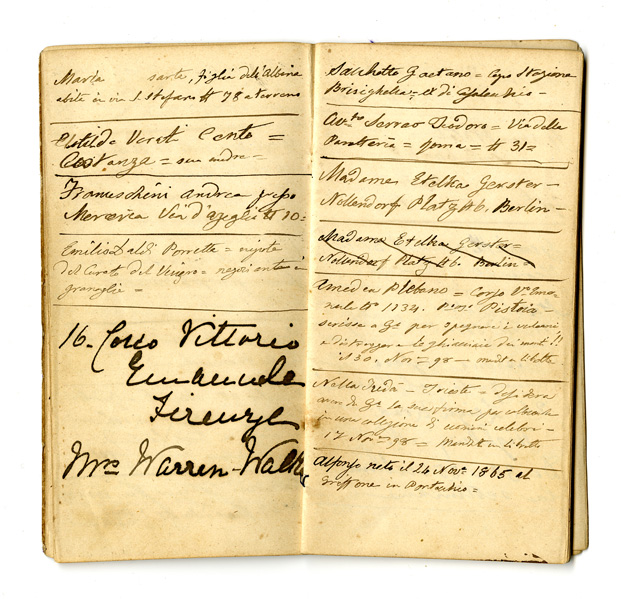 Maria sarte, figlia dell'Albina
abita in via S. Stefano # 78 a terreno
Clotilde Verati Cento =
Costanza = sua madre =
Franceschini Andrea presso
Merceria Via d'Azeglio # 10 =
Emilio Naldi Porretta = nipote
del Curato del = negoziante in
granaglie =
16. Corso Vittorio
Emanuele
Firenze
Mrs Warren-Walker
Sacchetti Gaetano = Capo Stazione
Brisighella =
Avv.to Sarrao Teodoro = Via della
Panetteria = Roma = # 31 =
Madame Etelka Gerster -
Nollendorf Platz # 6. Berlin -
Madame Etelka Gerster =
Nollendorf Platz # 6. Berlin =
Amedea Plebano = Corso V. Ema
nuele N° 1734. Pistoia -
scrisse a G. per spegnere i vulcani
e distruggere le ghiacciaie dei monti!!
30. Nov. 98 -
Nella - Trieste = desidera
di G. la sua firma per collocarla
in una collezione di uomini celebri -
17 Nov. 98 =
Alfonso nato il 24 Nov. 1865 al
Griffone in Pontecchio =